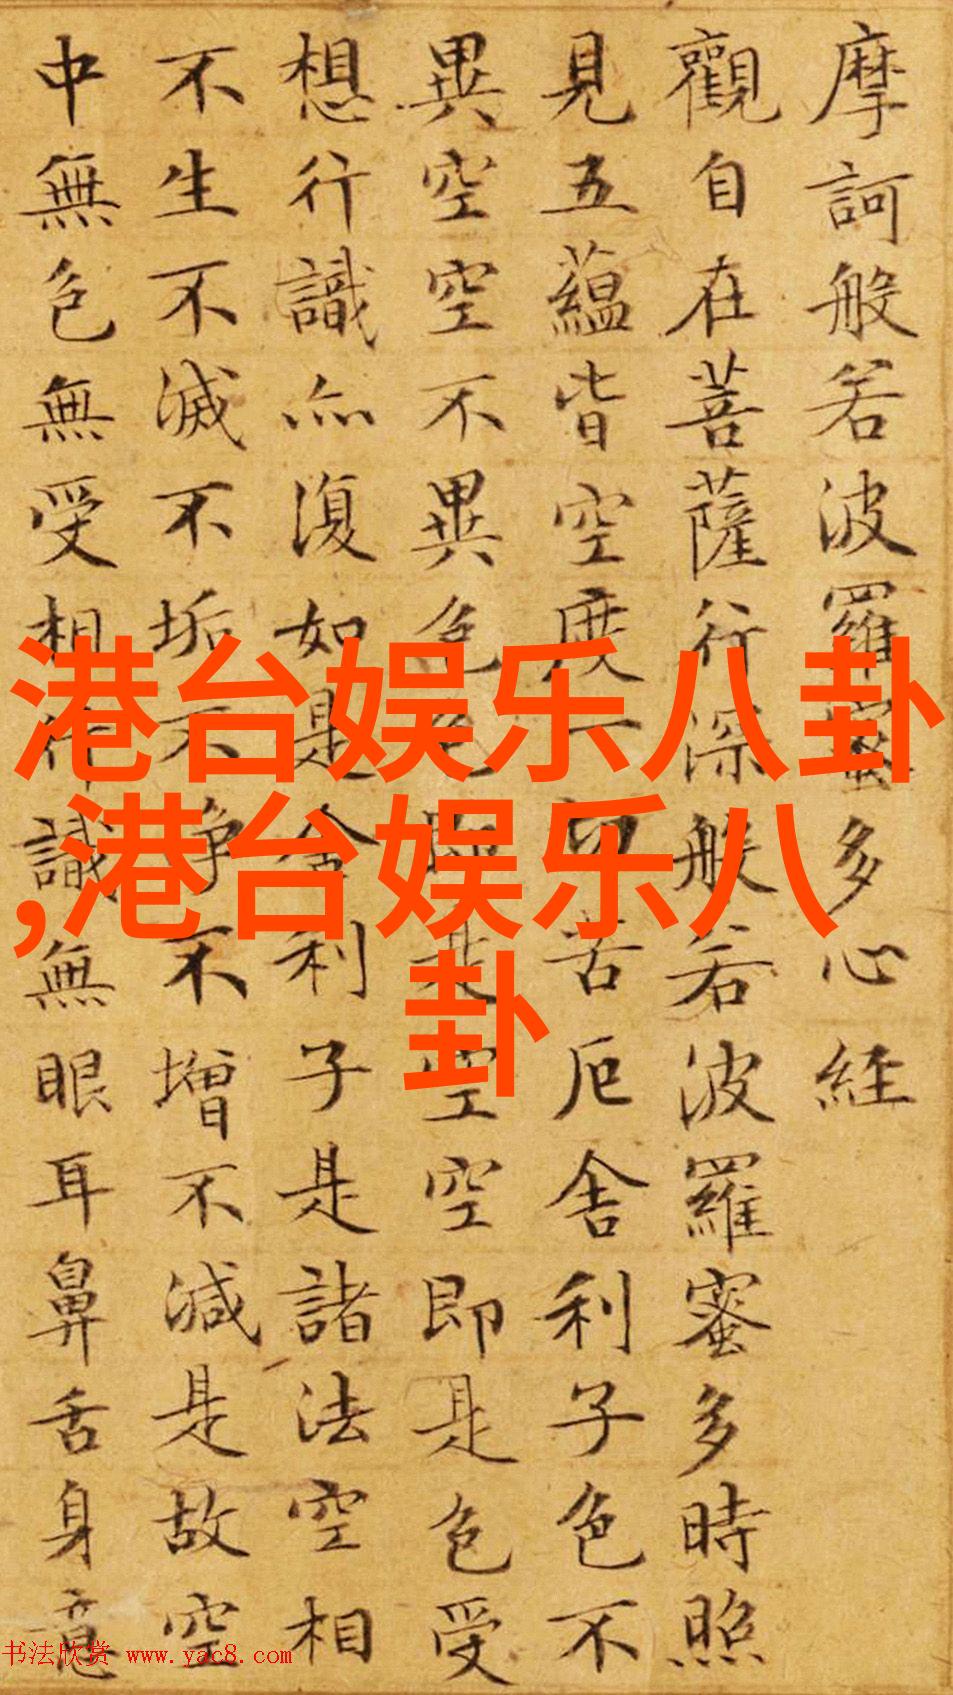 摩訶般若波羅蜜多心經
觀自在菩薩行深般若波羅蜜多時照
見五蘊皆空度一切苦厄舍利子色不
異空空不異色色即是空空即是色受
想行識亦復如是舍利子是諸法空相
不生不滅不垢不淨不增不減是故空
中無色無受想行識無眼耳鼻舌身意
港台娱乐八卦
,港台娱乐八
卦
书法欣赏 www.yac8.com